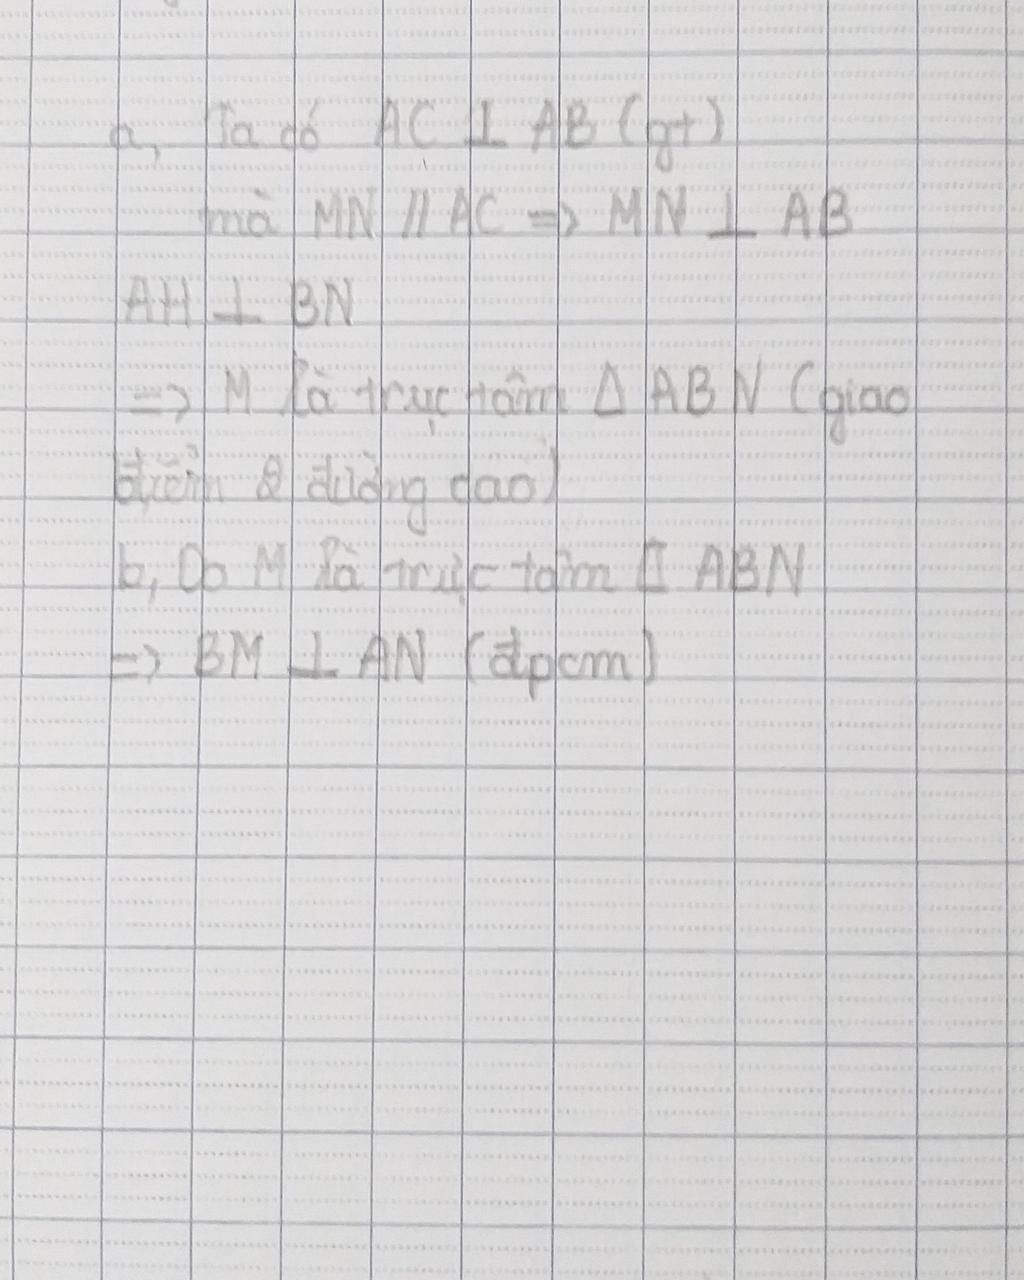 a, Ta có AC ⊥ AB (gt)
mà MN // AC => MN ⊥ AB
AH ⊥ BN
=> M là trực tâm Δ ABN (giao
điểm 2 đường cao)
b, Do M là trực tâm Δ ABN
=> BM ⊥ AN (đpcm)